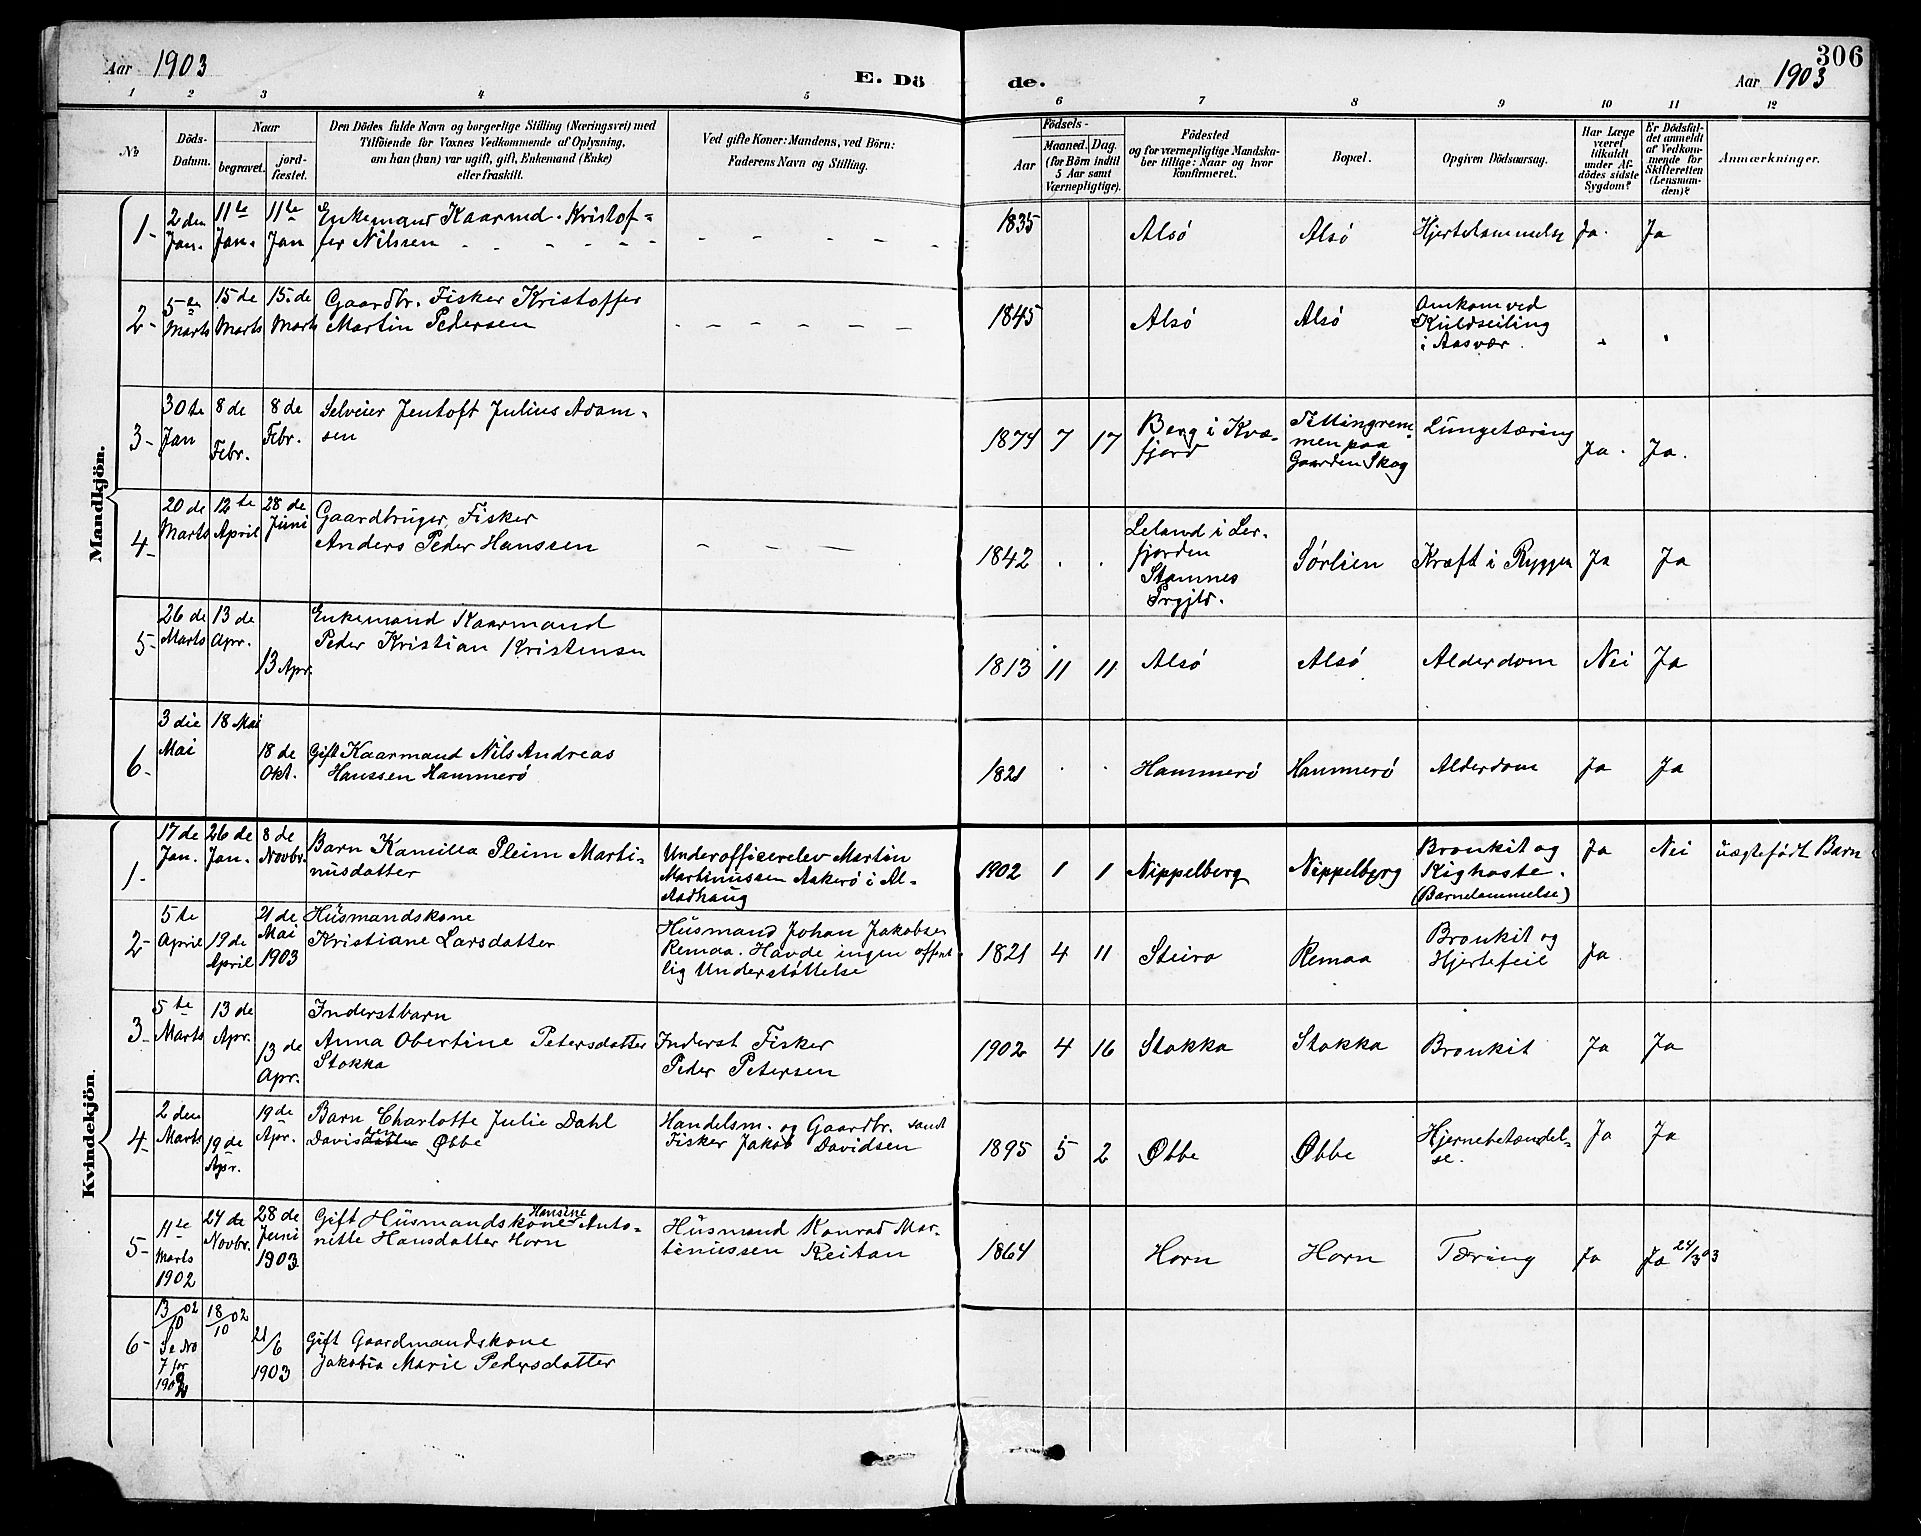 306
Aar 1903
E. Dö
de.
Aar 1903
1 2 3 4 5 6 7 8 9 10 11 12
No
Döds-
Datum.
Naar
begravet.
jord-
fæstet.
Den Dödes fulde Navn og borgerlige Stilling (Næringsvei) med
Tilföiende for Voxnes Vedkommende af Oplysning,
om han (hun) var ugift, gift, Enkemand (Enke)
eller fraskilt.
Ved gifte Koner: Mandens, ved Börn:
Faderens Navn og Stilling.
Födsels-
Aar
Maaned. Dag.
(for Börn indtil
5 Aar samt
Værnepligtige).
Födested
og for værnepligtige Mandska-
ber tillige: Naar og hvor
konfirmeret.
Bopæl.
Opgiven Dödsaarsag.
Har Læge
været
tilkaldt
under Af-
dödes sidste
Sygdom?
Er Dödsfal-
det anmeldt
af Vedkom-
mende for
Skifteretten
(Lensman-
den)?
Anmærkninger.
Mandkjön.
1-
2den
Jan.
11te
Jan.
11te
Jan
Enkemand Kaarmd. Kristof-
fer Nilssen
1835
Alsö
Alsö
Hjertelammelse
Ja.
Ja
2-
5te
Marts
15de
Marts
15.de
Marts
Gaardbr. Fisker Kristoffer
Martin Pedersen
1845
Alsö
Alsö
Omkom ved
Kuldseiling
i Aasvær.
3-
30te
Jan
8de
Febr.
8de
Febr.
Selveier Jentoft Julius Adam-
sen
1874 7 17
Berg i Kvæ-
fjord
men paa
Gaarden Skog
Lungetæring
Ja.
Ja.
4-
20de
Marts
12te
April
28de
Juni
Gaardbruger, Fisker
Anders Peder Hanssen
1842 . .
Leland i Ler-
fjorden
Stamnes
Prgjld.
Sörlien
Kræft i Ryggen
Ja
Ja
5-
26de
Marts
13de
Apr.
13 Apr.
Enkemand Kaarmand
Peder Kristian Kristensen
1813 11 11
Alsö
Alsö
Alderdom
Nei
Ja
6-
3die
Mai
18 Mai
18de
Okt.
Gift Kaarmand Nils Andreas
Hanssen Hammerö
1821 . .
Hammerö
Hammerö
Alderdom
Ja
Ja
Kvindekjön.
1-
17de
Jan.
26de
Jan.
8de
Novbr.
Barn Kamilla Pleim Marti-
nusdatter
Underofficerelev Martin
Martinussen Askerö i Al-
stadhaug
1902 1 1
Nippelberg
Nippelberg
Bronkit og
Kighoste.
(Barnelammelse)
Ja
Nei
uægtefödt Barn
2-
5te
April
19de
April
21de
Mai
1903
Husmandskone
Kristiane Larsdatter
Husmand Johan Jakobsen
Remaa. Havde ingen offent
lig Understöttelse
1821 4 11
Steiro
Remaa
Bronkit og
Hjertefeil
Ja
3-
5te
Marts
13de
Apr.
13de
Apr.
Inderstbarn
Anna Obertine Petersdatter
Stokka
Inderst Fisker
Peder Petersen
1902 4 16
Stokka
Stokka
Bronkit
Ja
Ja
4-
2den
Marts
19de
Apr.
19de
Apr.
Barn Charlotte Julie Dahl
Davisdatter sen Øbbe
Handelsm. og Gaardbr. samt
Fisker Jakob Davidsen
1895 5 2
Øbbe
Øbbe
Hjernebetændel-
se.
Ja
Ja
5-
11te
Marts
1902
24de
Novbr.
28de
Juni
1903
Gift Husmandskone Hansine Anto-
nette Hansdatter Horn
Husmand Konrad Mar-
tinussen Reitan
1864
Horn
Horn
Tæring
Ja
Ja 24/3 03
6-
13/10 02
Se No
7 for
1902
18/10 02
21/6
1903
Gift Gaardmandskone
Jakobia Marie Pedersdatter